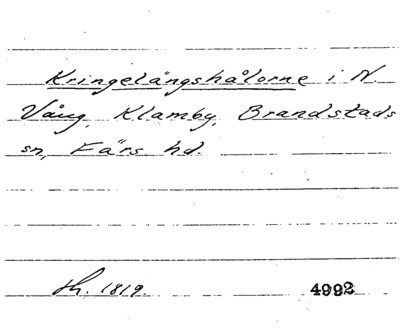 Kringelängshålorne i N.
Vång, Klamby, Brandstads
sn, Färs hd.
Sh. 1819. 4992